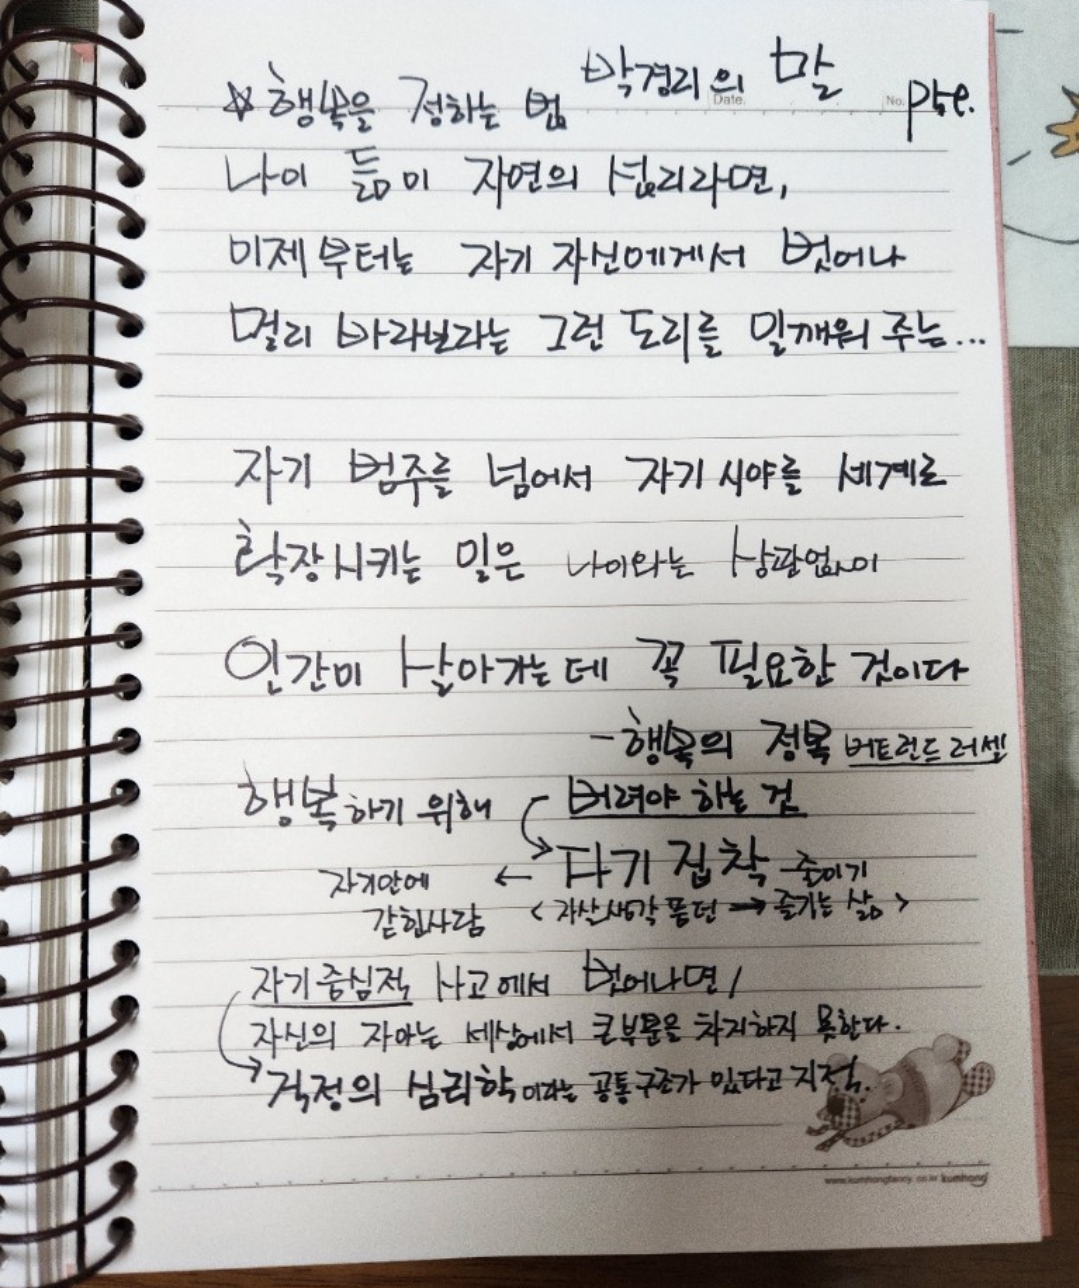 ☆ 행복을 정하는 법 박경리의 말
Date. No.
나이 듦이 자연의 섭리라면,
이제부터는 자기 자신에게서 벗어나
멀리 바라보라는 그런 도리를 일깨워 주는...
자기 범주를 넘어서 자기 시야를 세계로
확장시키는 일은 나이와는 상관없이
인간이 살아가는데 꼭 필요한 것이다
- 행복의 정복 버트런드 러셀
행복하기 위해 버려야 하는 것
자기 집착 줄이기
자기안에 ←
갇힌사람 < 자살생각 품던 → 즐기는 삶 >
자기중심적 사고에서 벗어나면,
자신의 자아는 세상에서 큰부분을 차지하지 못한다.
걱정의 심리학이라는 공통구조가 있다고 지적.
www.kumhongfancy.co.kr kumhong